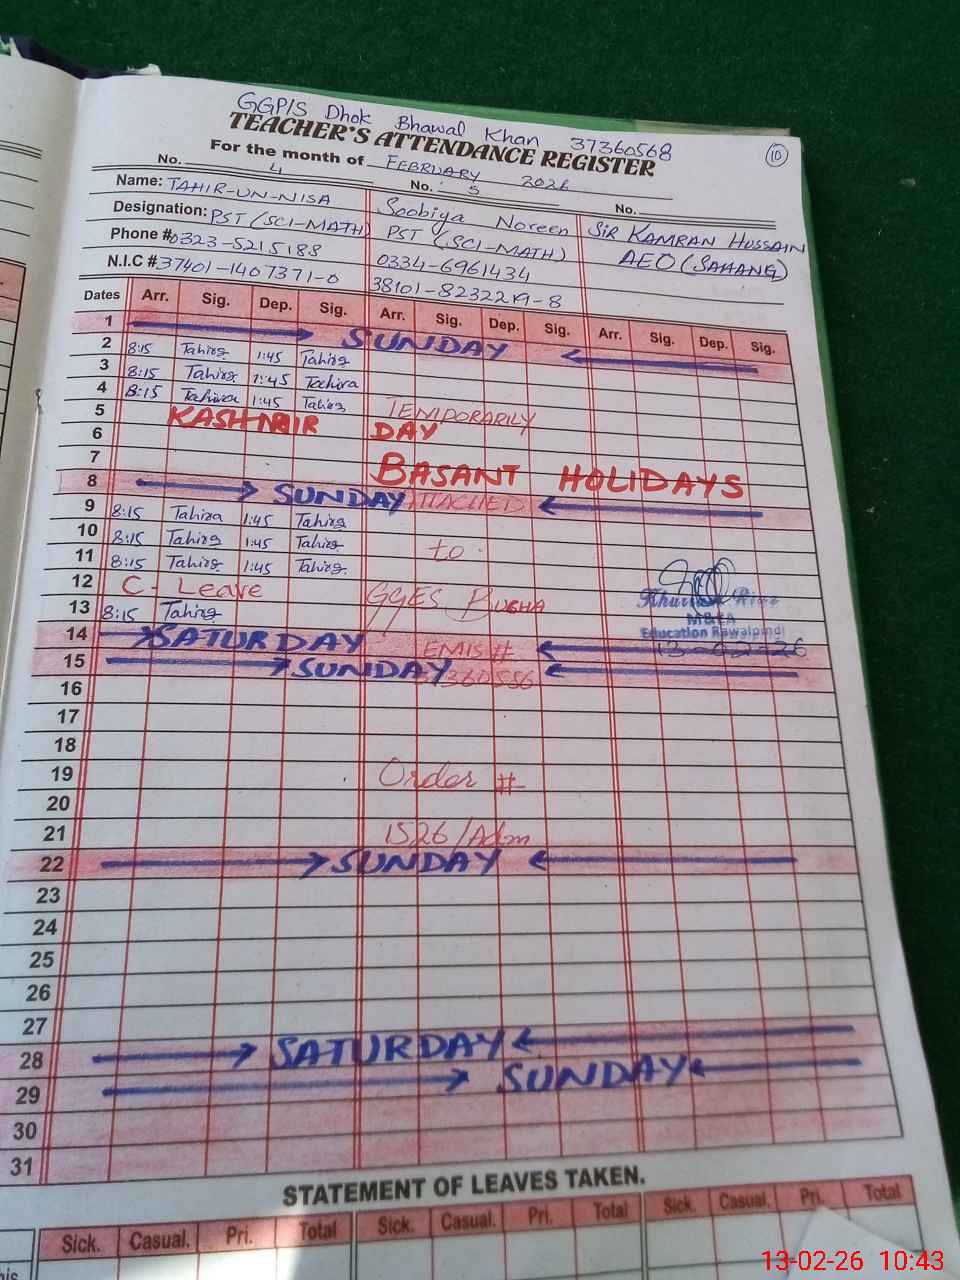 GGP/S Dhok Bhawal Khan 37360568
TEACHER'S ATTENDANCE REGISTER
10
For the month of FEBRUARY 2026
No. 4 No. 5 No.
Name: TAHIR-UN-NISA Soobiya Noreen SIR KAMRAN HUSSAIN
Designation: PST (SCI-MATH) PST (SCI-MATH) AEO (SAHANG)
Phone # 0323-5215188 0334-6961434
N.I.C # 37401-1407371-0 38101-8232219-8
Dates Arr. Sig. Dep. Sig. Arr. Sig. Dep. Sig. Arr. Sig. Dep. Sig.
1 SUNDAY
2 8:15 Tahira 1:45 Tahira
3 8:15 Tahira 1:45 Tahira
4 8:15 Tahira 1:45 Tahira TEMPORARILY
5 KASHMIR DAY
6
7 BASANT HOLIDAYS
8 SUNDAY ATTACHED
9 8:15 Tahira 1:45 Tahira
10 8:15 Tahira 1:45 Tahira to
11 8:15 Tahira 1:45 Tahira
12 C- Leave GGES BUGHA
13 8:15 Tahira
M&EA
Education Rawalpindi
13-02-26
14 SATURDAY EMIS #
15 SUNDAY 37360556
16
17
18
19 Order #
20
21 1526/Adm
22 SUNDAY
23
24
25
26
27
28 SATURDAY
29 SUNDAY
30
31
STATEMENT OF LEAVES TAKEN.
Sick. Casual. Pri. Total Sick. Casual. Pri. Total Sick. Casual. Pri. Total
13-02-26 10:43